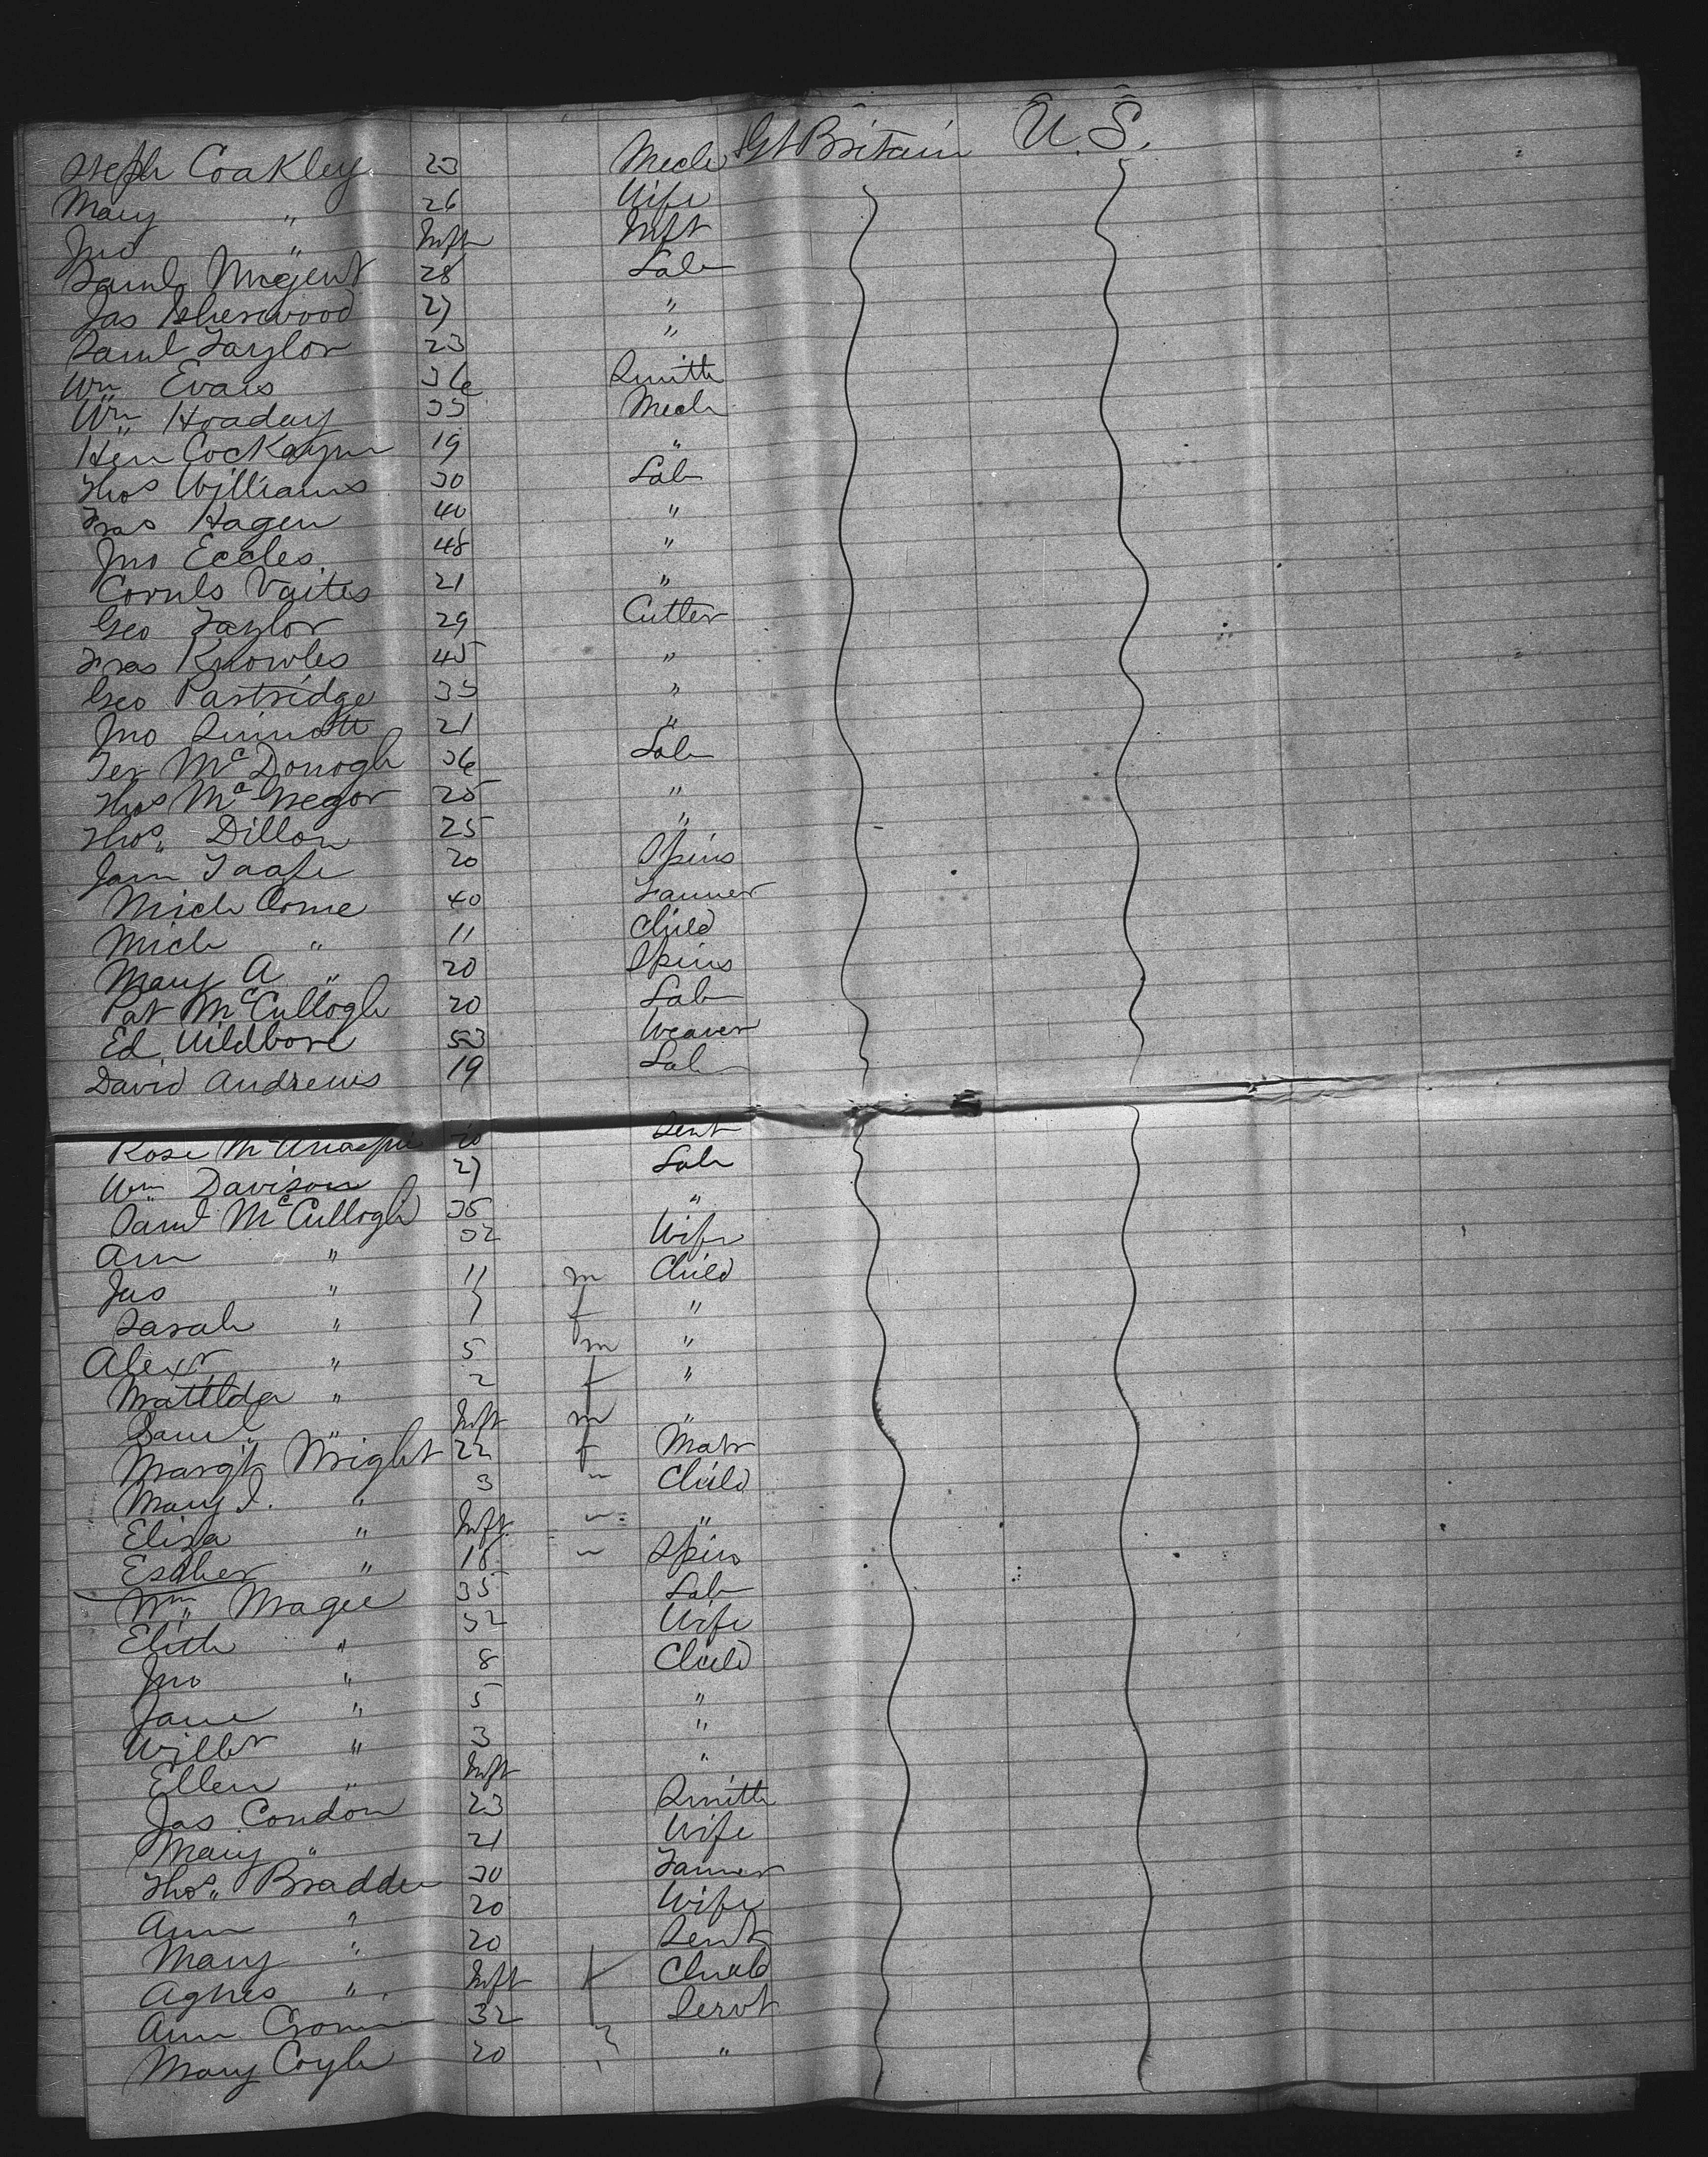 Steph Coakley 23 Mech Gt Britain U.S.
Mary " 26 Wife
Jno " Inft Inft
Saml Nugent 28 Lab
Jas Isherwood 27 "
Saml Taylor 23 "
Wm Evans 36 Smith
Wm Hoaday 35 Mech
Hen Cockayn 19 "
Thos Williams 30 Lab
Fras Hagen 40 "
Jno Eccles 48 "
Cornls Vaites 21 "
Geo Taylor 29 Cutter
Fras Knowles 45 "
Geo Partridge 35 "
Jno Sinnott 21 "
Ter McDonogh 36 Lab
Thos McGregor 25 "
Thos Dillon 25 "
Jam Taafe 20 Spins
Mich Come 40 Farmer
Mich " 11 Child
Mary A " 20 Spins
Pat McCullogh 20 Lab
Ed. Wildbore 53 Weaver
David Andrews 19 Lab
Rose 20 Servt
Wm Davison 27 Lab
Saml McCullogh 35 "
Ann " 32 Wife
Jas " 11 m Child
Sarah " 7 f "
Alexr " 5 m "
Matilda " 2 f "
Saml " Inft m "
Margt Wright 22 f Matr
Mary J. " 3 " Child
Eliza " Inft " "
Esther " 18 " Spins
Wm Magee 35 Lab
Elith " 32 Wife
Jno " 8 Child
Jane " 5 "
Willm " 3 "
Ellen " Inft "
Jas Condon 23 Smith
Mary " 21 Wife
Thos Bradden 30 Farmer
Ann " 20 Wife
Mary " 20 Servt
Agnes " Inft f Child
Ann 32 Servt
Mary Coyle 20 "